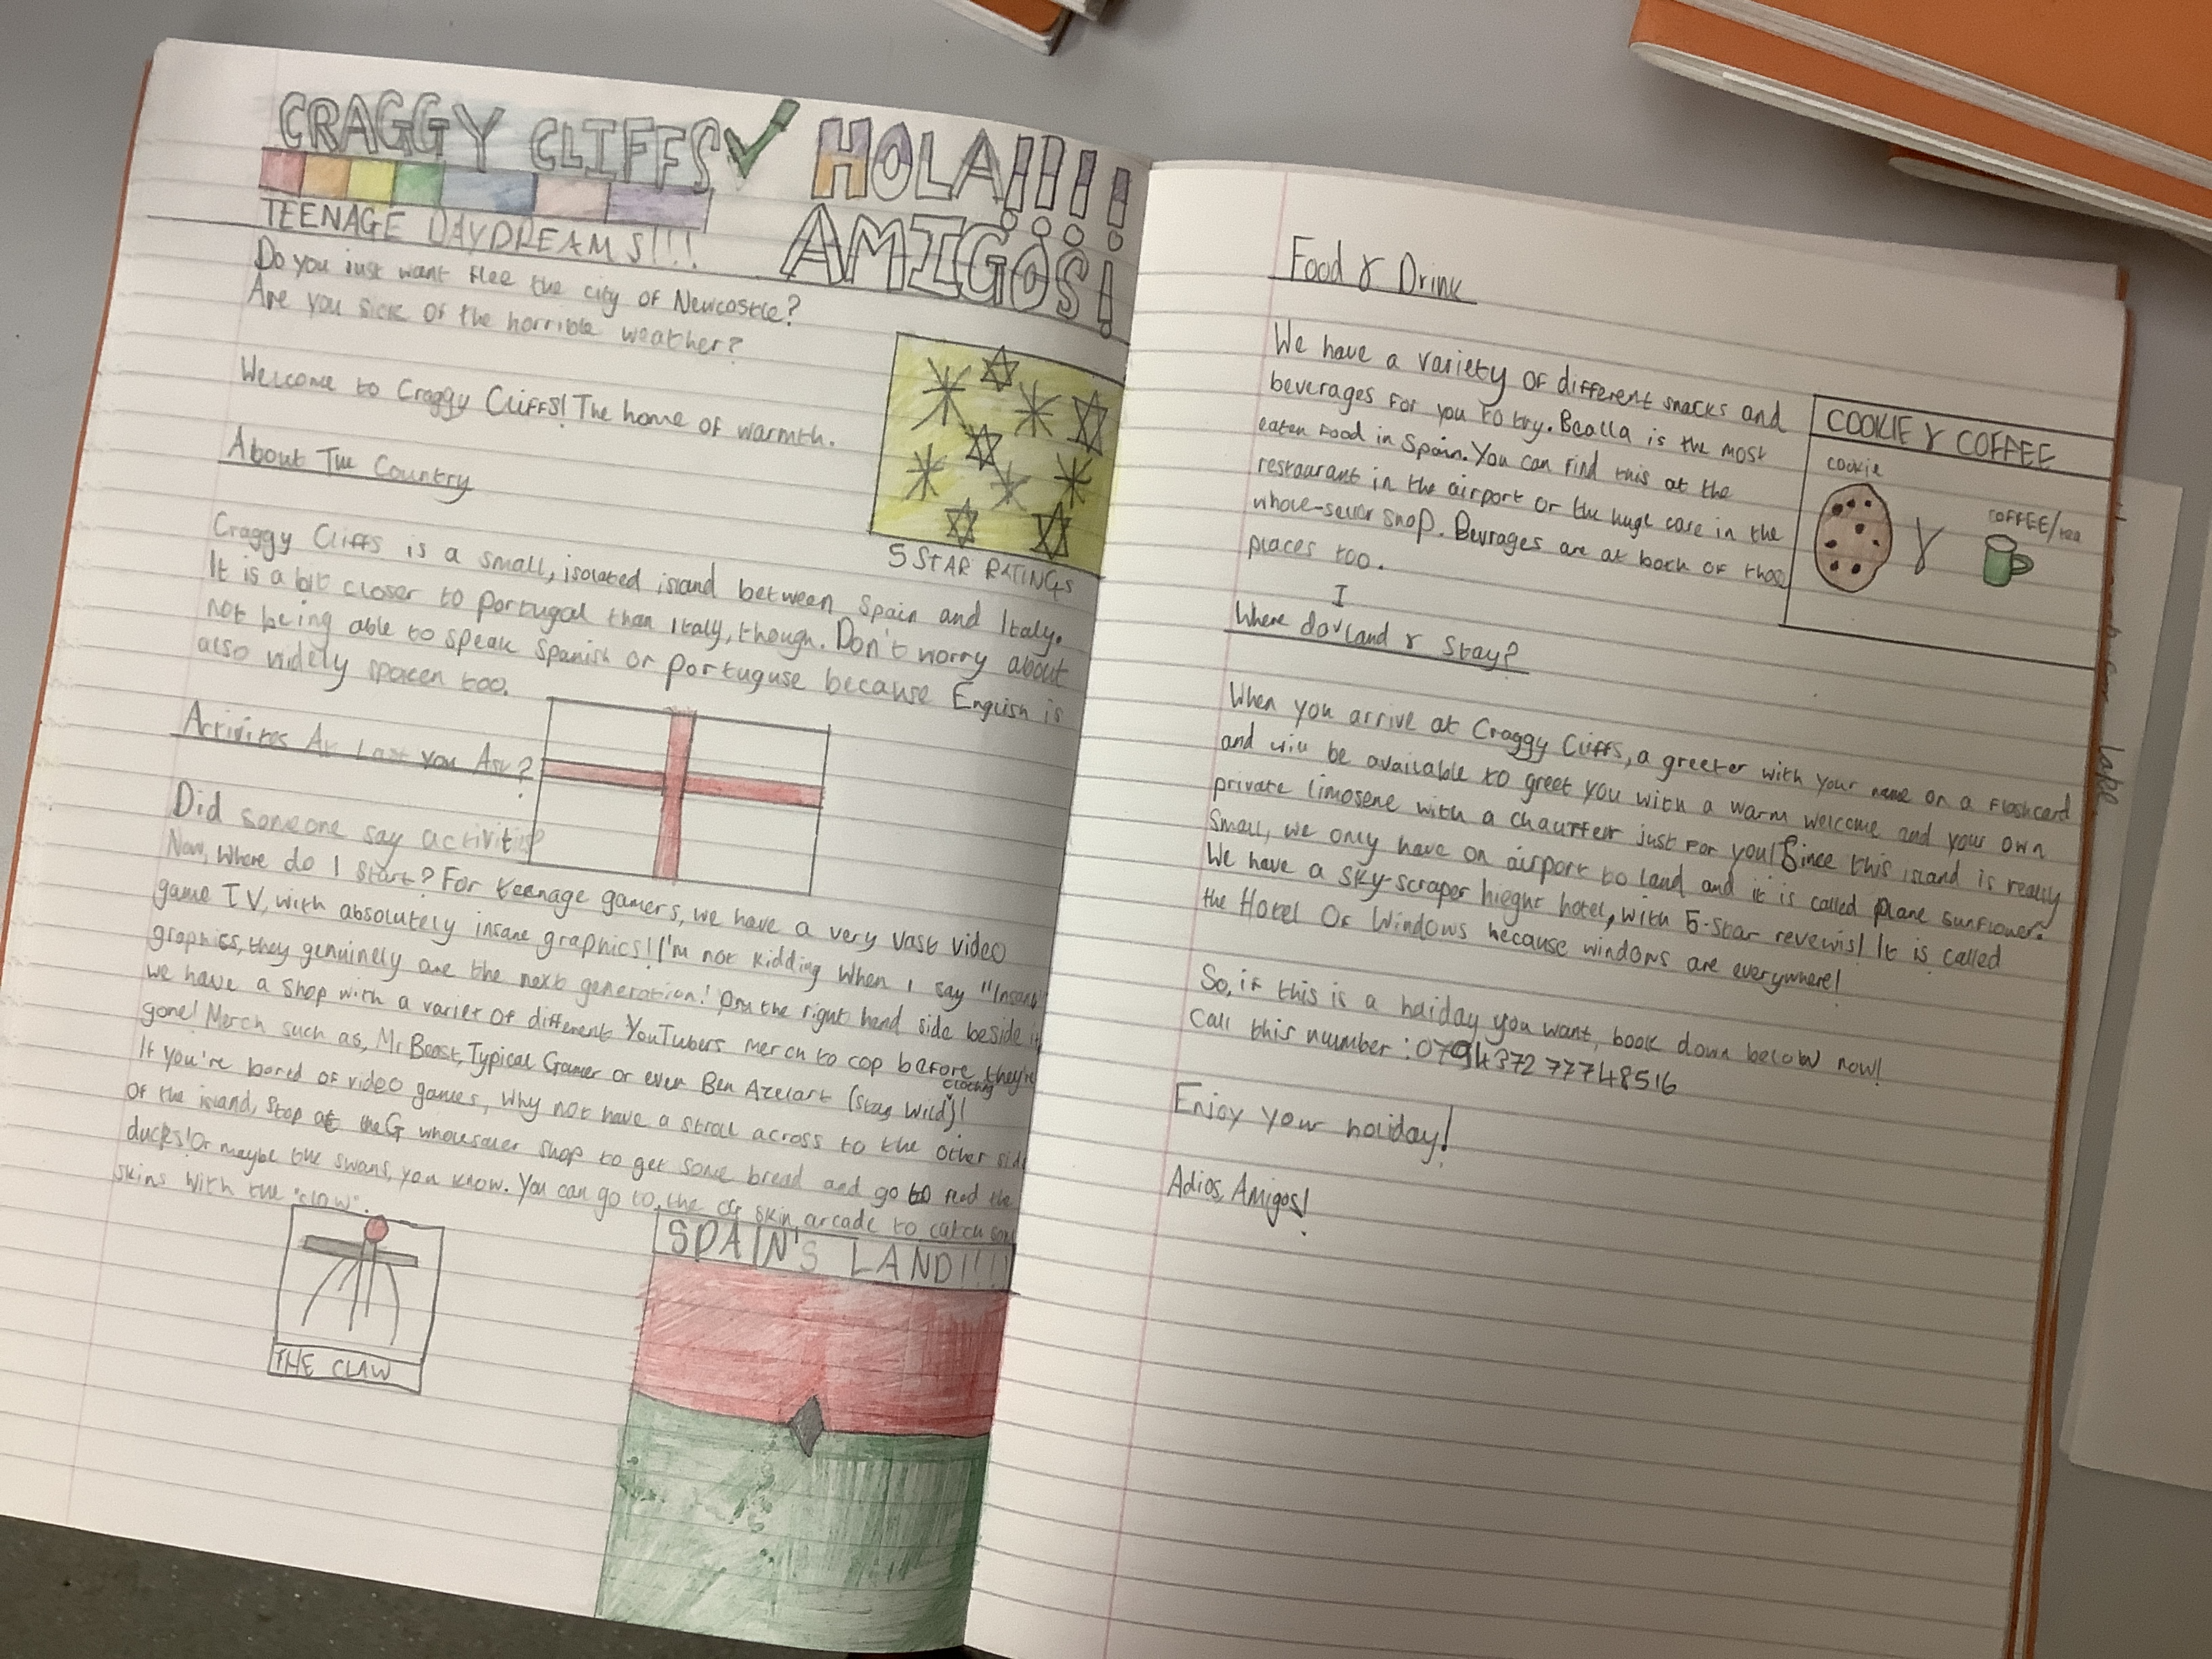 CRAGGY CLIFFS
HOLA!!!!
AMIGOS!
TEENAGE DAYDREAMS!!!
Do you just want flee the city of Newcastle?
Are you sick of the horrible weather?
Welcome to Craggy Cliffs! The home of warmth.
5 STAR RATINGS
About The Country
Craggy Cliffs is a small, isolated island between Spain and Italy.
It is a bit closer to Portugal than Italy, though. Don't worry about
not being able to speak Spanish or portuguse because English is
also widely spoken too.
At Last you Ask?
Did someone say
Now, Where do I start? For teenage gamers, we have a very vast video
game TV, with absolutely insane graphics! I'm not kidding when I say "Insane"
graphics, they genuinely are the next generation! On the right hand side beside it
we have a shop with a variet of different YouTubers merch to cop before they're
gone! Merch such as, Mr Beast, Typical Gamer or even Ben Azelart (Stay Wild clothing)!
If you're bored of video games, why not have a stroll across to the other side
of the island, stop at the G wholesaler shop to get some bread and go to feed the
ducks! Or maybe the swans, you know. You can go to the skin arcade to catch some
skins with the "claw".
THE CLAW
SPAIN'S LAND!!!
Food & Drink
We have a variety of different snacks and
beverages for you to try. is the most
eaten food in Spain. You can find this at the
restaurant in the airport or the huge cafe in the
whole-seller shop. Bevrages are at both of those
places too.
COOKIE & COFFEE
cookie
&
COFFEE/tea
Where do I land & Stay?
When you arrive at Craggy Cliffs, a greeter with your name on a flashcard
and will be available to greet you with a warm welcome and your own
private limosene with a chauffer just for you! Since this island is really
small, we only have on airport to land and it is called plane sunflower.
We have a sky-scraper hieght hotel, with 5-star revewis! It is called
the Hotel Of Windows because windows are everywhere!
So, if this is a haiday you want, book down below now!
Call this number: 0794372 77748516
Enjoy your holiday!
Adios, Amigos!